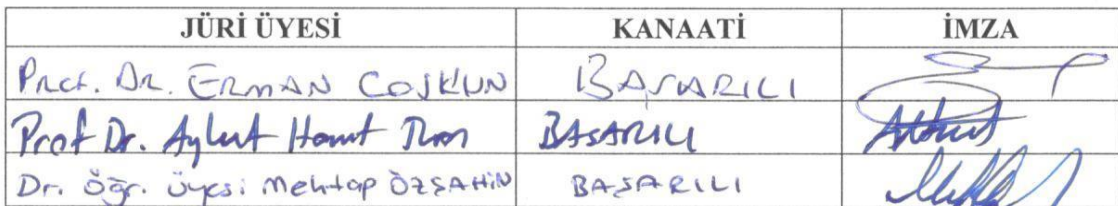 JÜRİ ÜYESİ KANAATİ İMZA
Prof. Dr. ERMAN COŞKUN BAŞARILI
Prof Dr. Aykut Hamit BAŞARILI
Dr. Öğr. Üyesi Mehtap ÖZŞAHİN BAŞARILI